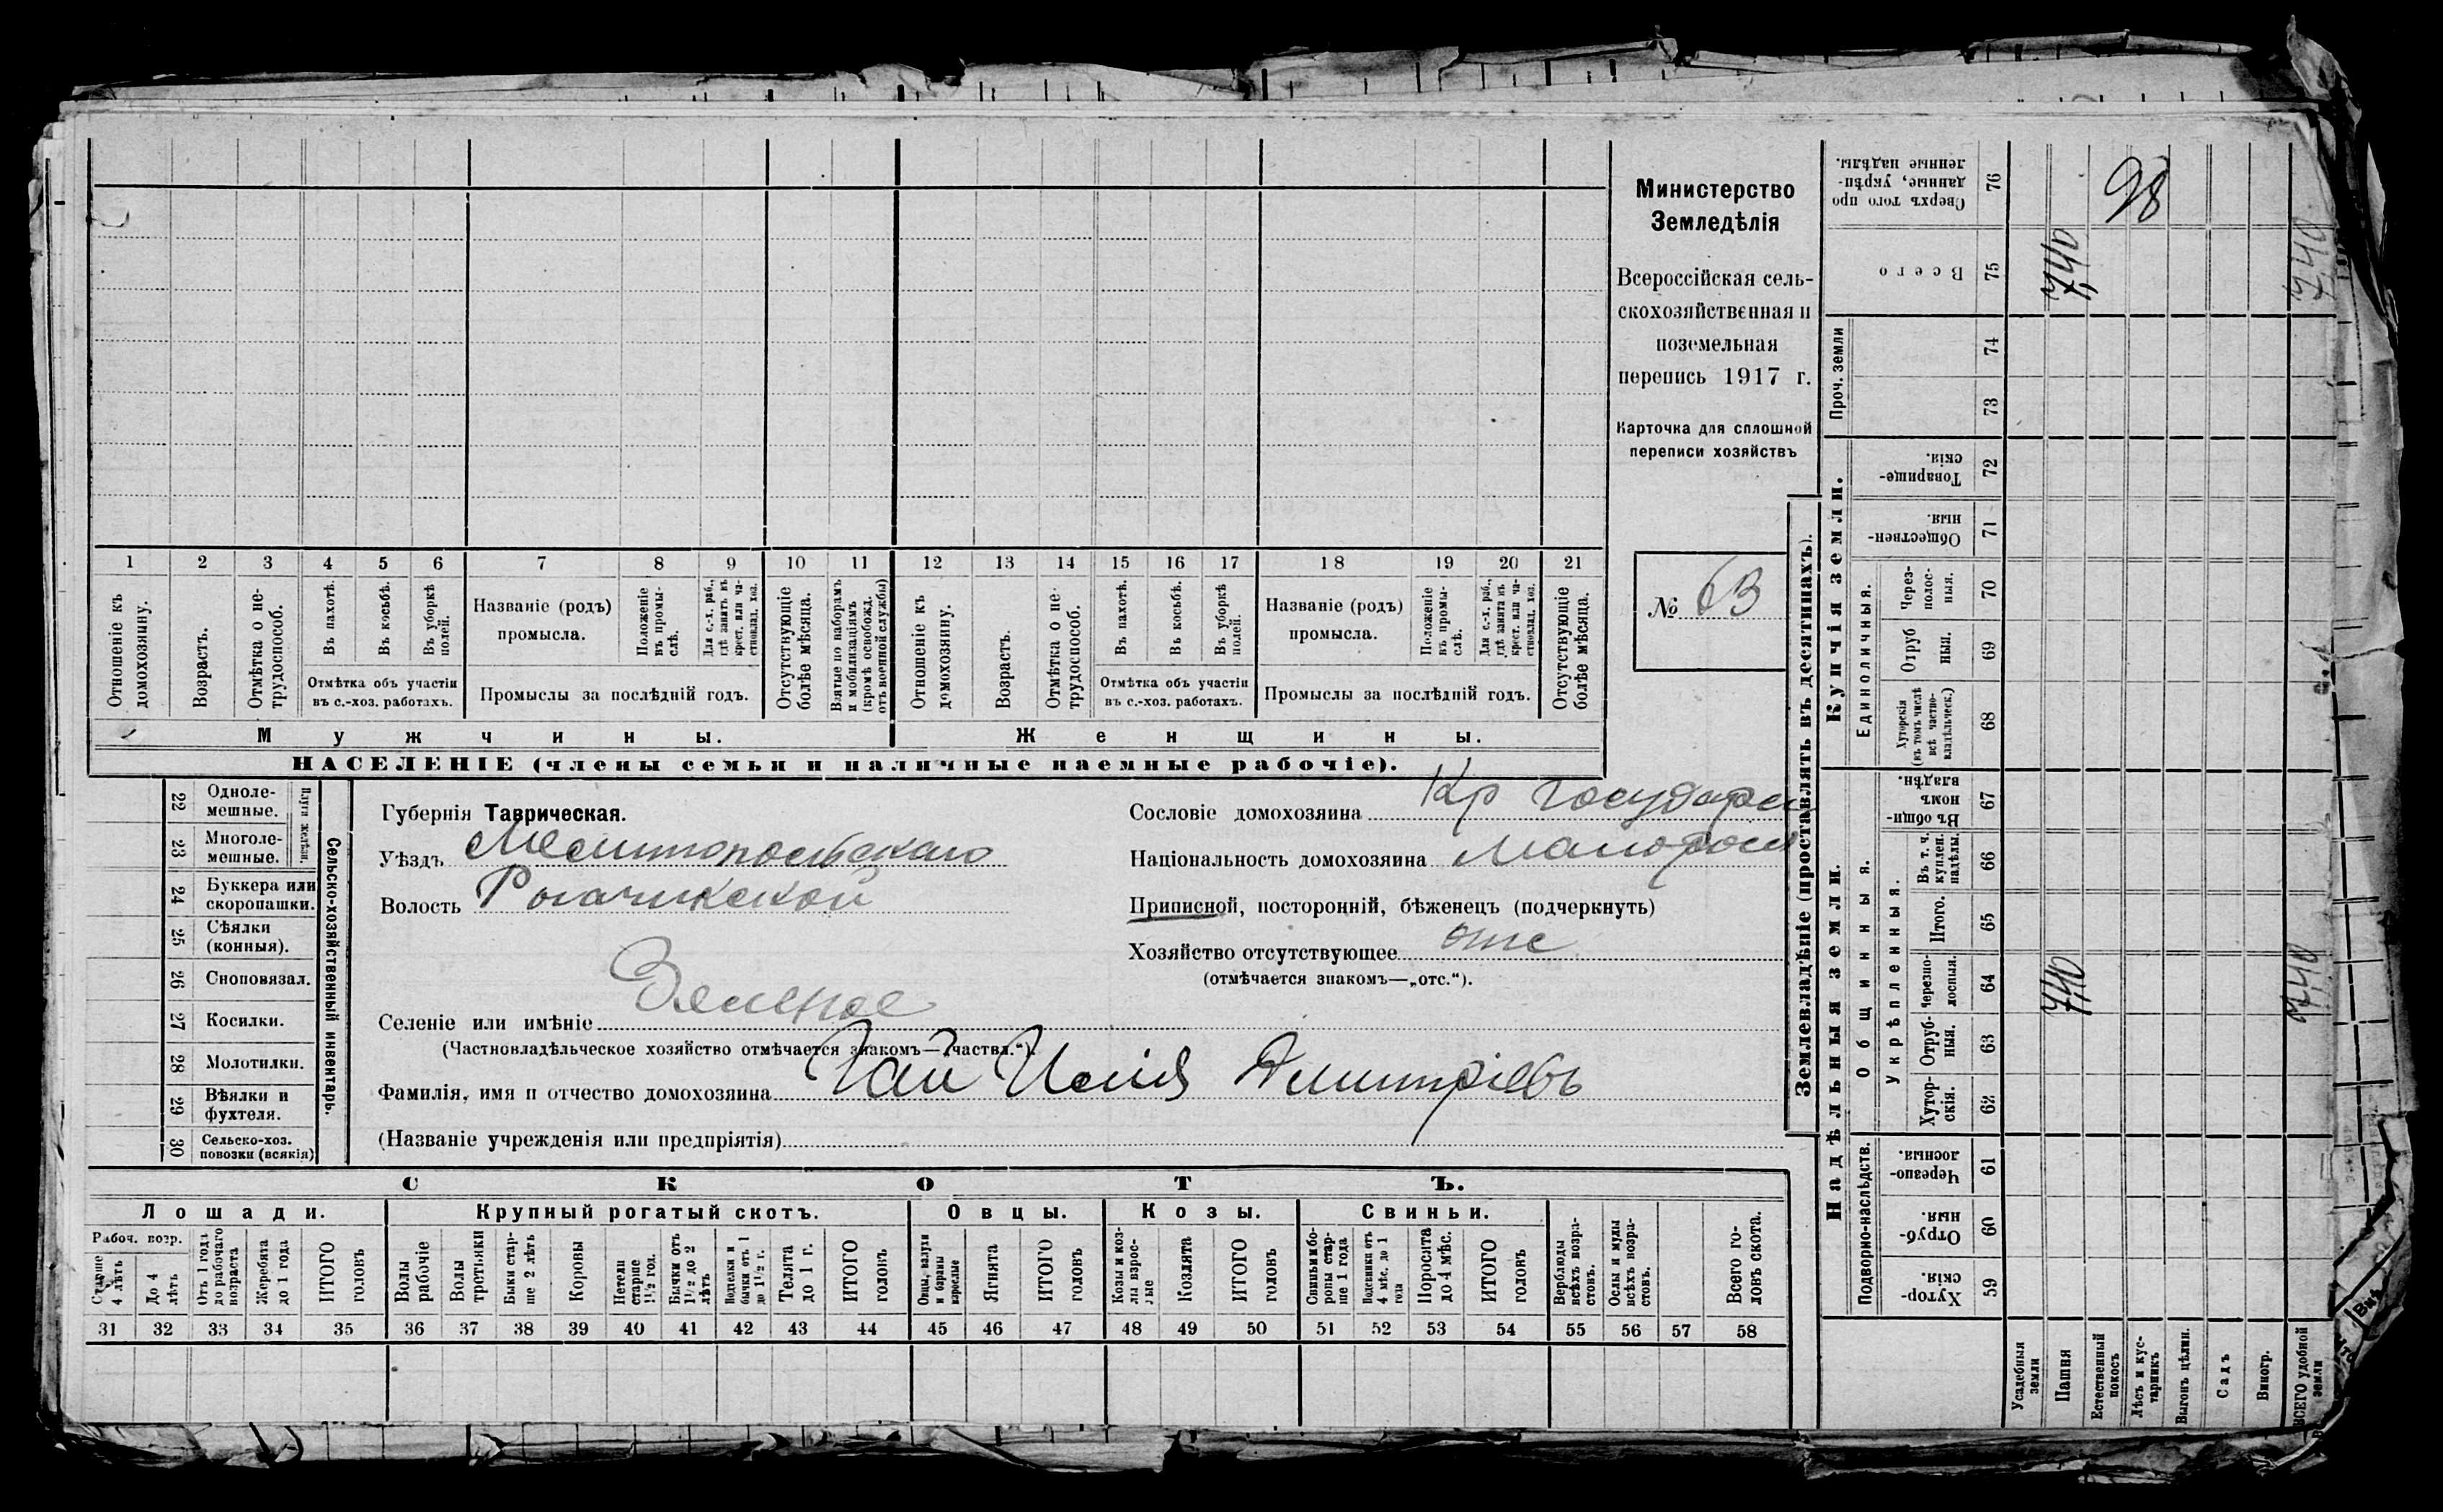 Министерство
Земледѣлія
Всероссійская сель-
скохозяйственная и
поземельная
перепись 1917 г.
Карточка для сплошной
переписи хозяйствъ
№ 63
1 2 3 4 5 6 7 8 9 10 11 12 13 14 15 16 17 18 19 20 21
Отношеніе къ домохозяину.
Возрастъ.
Отмѣтка о не-
трудоспособ.
Въ пахотѣ.
Въ косьбѣ.
Въ уборкѣ полей.
Отмѣтка объ участіи
въ с.-хоз. работахъ.
Названіе (родъ)
промысла.
Положеніе
въ промы-
слѣ.
Для с.-х. раб.,
гдѣ занятъ въ
крест. или ча-
стновлад. хоз.
Промыслы за послѣдній годъ.
Отсутствующіе
болѣе мѣсяца.
Взятые по наборамъ
и мобилизаціямъ
(кромѣ освобожд.
отъ военной службы)
Отношеніе къ
домохозяину.
Возрастъ.
Отмѣтка о не-
трудоспособ.
Въ пахотѣ.
Въ косьбѣ.
Въ уборкѣ
полей.
Отмѣтка объ участіи
въ с.-хоз. работахъ.
Названіе (родъ)
промысла.
Положеніе
въ промы-
слѣ.
Для с.-х. раб.,
гдѣ занята въ
крест. или ча-
стновлад. хоз.
Промыслы за послѣдній годъ.
Отсутствующіе
болѣе мѣсяца.
Мужчины.
Женщины.
НАСЕЛЕНІЕ (члены семьи и наличные наемные рабочіе).
22 Одноле-
мешные.
23 Многоле-
мешные.
Плуги желѣзн.
24 Буккера или
скоропашки.
25 Сѣялки
(конныя).
26 Сноповязал.
27 Косилки.
28 Молотилки.
29 Вѣялки и
фухтеля.
30 Сельско-хоз.
повозки (всякія)
Сельско-хозяйственный инвентарь.
Губернія Таврическая.
Уѣздъ Мелитопольскаго
Волость Рогачикской
Селеніе или имѣніе Зеленое
(Частновладѣльческое хозяйство отмѣчается знакомъ—„частвл.“).
Фамилія, имя и отчество домохозяина Гай Илія Дмитріевъ
(Названіе учрежденія или предпріятія)
Сословіе домохозяина Кр государ
Національность домохозяина малорос
Приписной, посторонній, бѣженецъ (подчеркнуть)
Хозяйство отсутствующее отс
(отмѣчается знакомъ—„отс.“).
СКОТЪ.
Лошади. Крупный рогатый скотъ. Овцы. Козы. Свиньи.
Рабоч. возр.
Старше
4 лѣтъ
До 4
лѣтъ
Отъ 1 года
до рабочаго
возраста
Жеребята
до 1 года
ИТОГО
головъ
Волы
рабочіе
Волы
третьяки
Быки стар-
ше 2 лѣтъ
Коровы
Нетели
старше
1½ год.
Бычки отъ
1½ до 2
лѣтъ
Подтелки и
бычки отъ 1
до 1½ г.
Телята
до 1 г.
ИТОГО
головъ
Овцы, валухи
и бараны
взрослые
Ягнята
ИТОГО
головъ
Козы и коз-
лы взрос-
лые
Козлята
ИТОГО
головъ
Свиньи и бо-
ровы стар-
ше 1 года
Подсвинки отъ
4 мѣс. до 1
года
Поросята
до 4 мѣс.
ИТОГО
головъ
Верблюды
всѣхъ возра-
стовъ.
Ослы и мулы
всѣхъ возра-
стовъ.
Всего го-
ловъ скота.
31 32 33 34 35 36 37 38 39 40 41 42 43 44 45 46 47 48 49 50 51 52 53 54 55 56 57 58
Землевладѣніе (проставлять въ десятинахъ).
Сверхъ того про
данные, укрѣп-
ленные надѣлы.
76
98
Всего
75
7,40
7,40
Проч. земли
74
73
Купчія земли.
Товарище-
скія.
72
Обществен-
ныя.
71
Единоличныя.
Через-
полос-
ныя.
70
Отруб
ныя.
69
Хуторскія
(въ томъ числѣ
всѣ частно-
владѣльческ.)
68
Надѣльныя земли.
Общинныя.
Въ общи-
номъ
владѣн.
67
Укрѣпленныя.
Въ т. ч.
куплен.
надѣлы.
66
Итого.
65
Черезпо-
лосныя.
64
7,40
7,40
Отруб-
ныя.
63
Хутор-
скія.
62
Подворно-наслѣдств.
Черезпо-
лосныя.
61
Отруб-
ныя.
60
Хутор-
скія.
59
Усадебныя
земли
Пашня
Естественный
покосъ
Лѣсъ и кус-
тарникъ
Выгонъ цѣлин.
Садъ
Виногр.
ВСЕГО удобной
земли